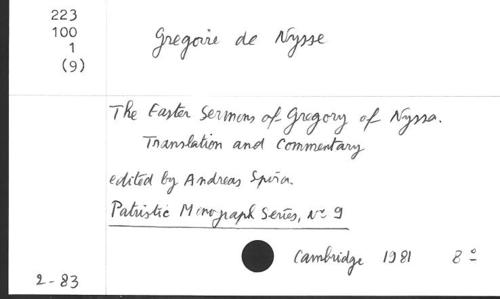 223
100
1
(9)
Gregoire de Nysse
The Easter Sermons of Gregory of Nyssa.
Translation and Commentary
edited by Andreas Spira.
Patristic Monograph Series, Nº 9
Cambridge 1981 8º
2-83